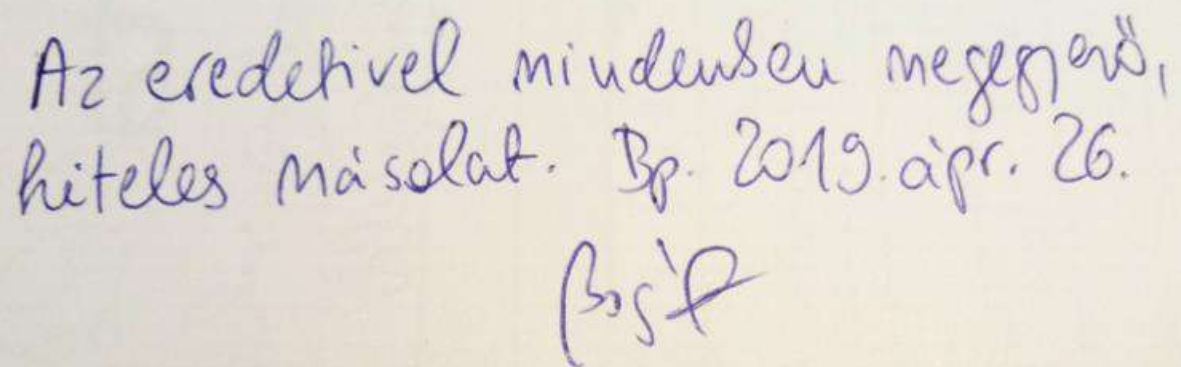 Az eredetivel mindenben megegyező,
hiteles másolat. Bp. 2019. ápr. 26.